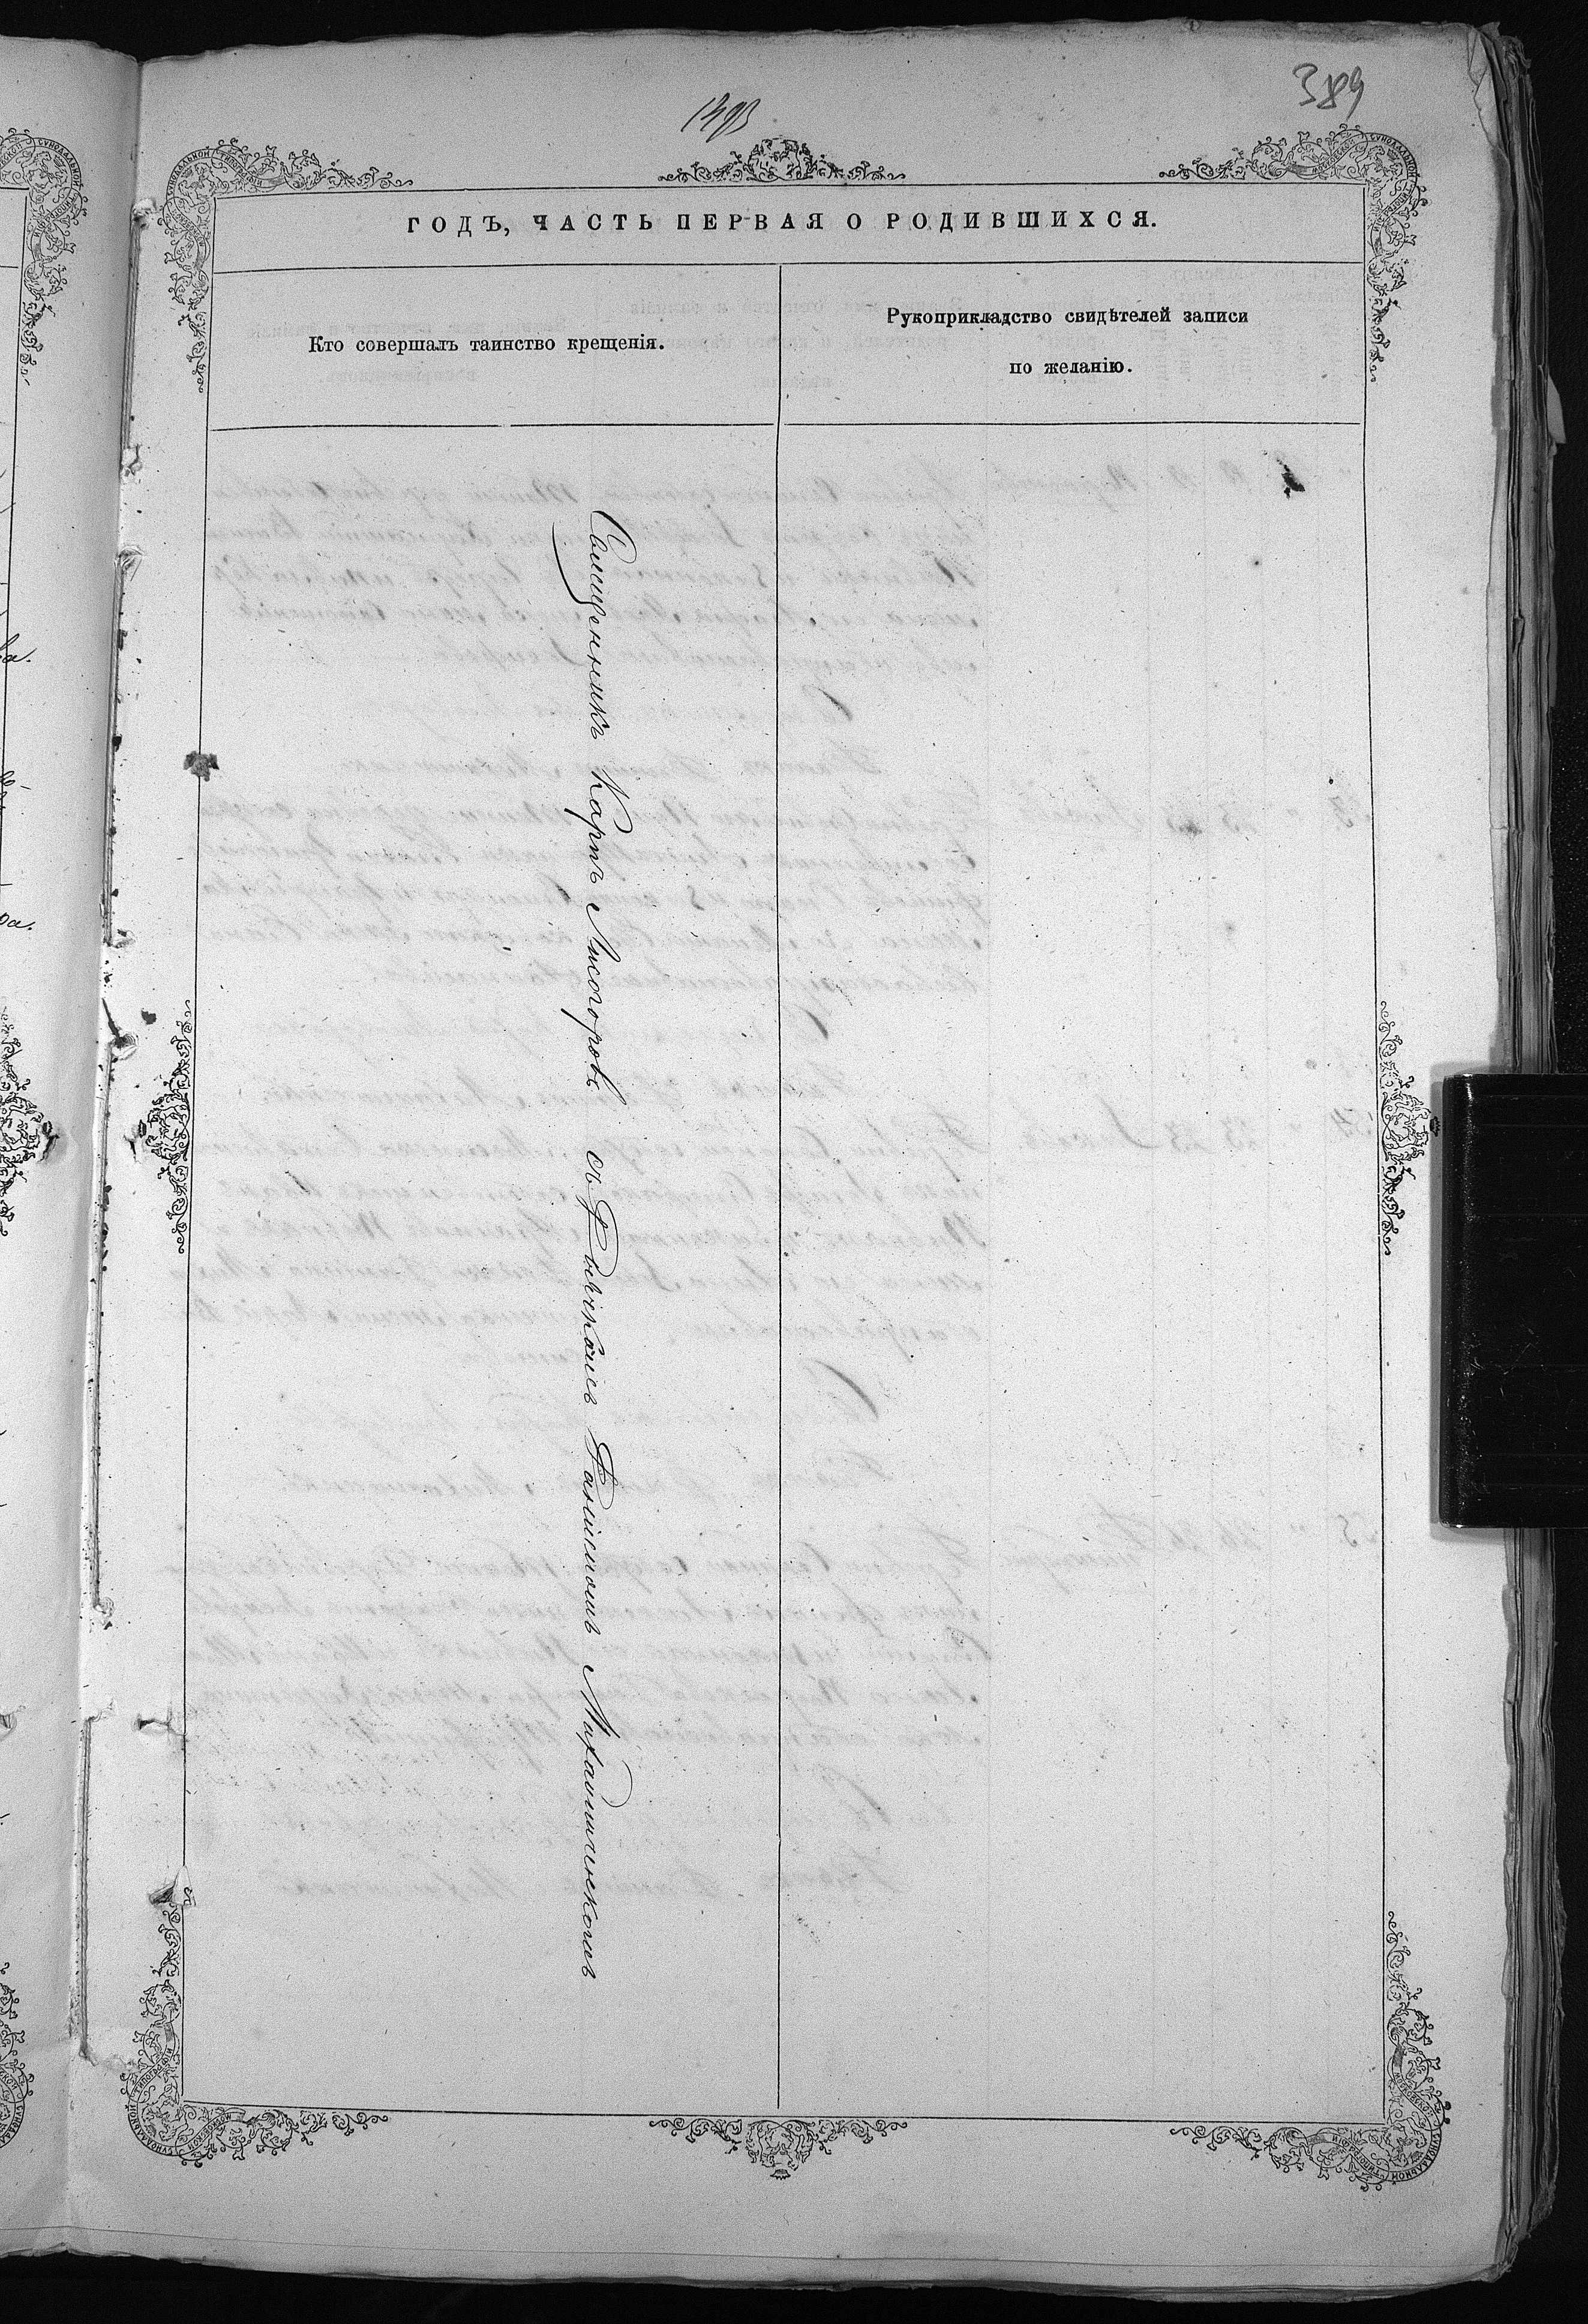 389
ГОДЪ, ЧАСТЬ ПЕРВАЯ О РОДИВШИХСЯ.
Кто совершалъ таинство крещенія.
Рукоприкладство свидѣтелей записи
по желанію.
Священникъ Карпъ Лисогоровъ съ Дьячкомъ Данииломъ